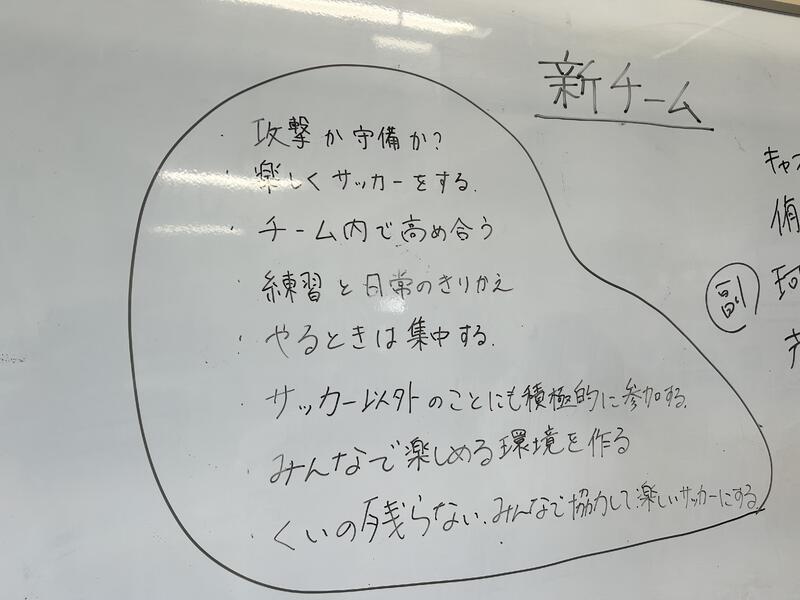 新チーム
・攻撃か守備か?
・楽しくサッカーをする.
・チーム内で高め合う
・練習と日常のきりかえ
・やるときは集中する.
・サッカー以外のことにも積極的に参加する.
・みんなで楽しめる環境を作る
・くいの残らない.みんなで協力して.楽しいサッカーにする
キャプ
侑
副